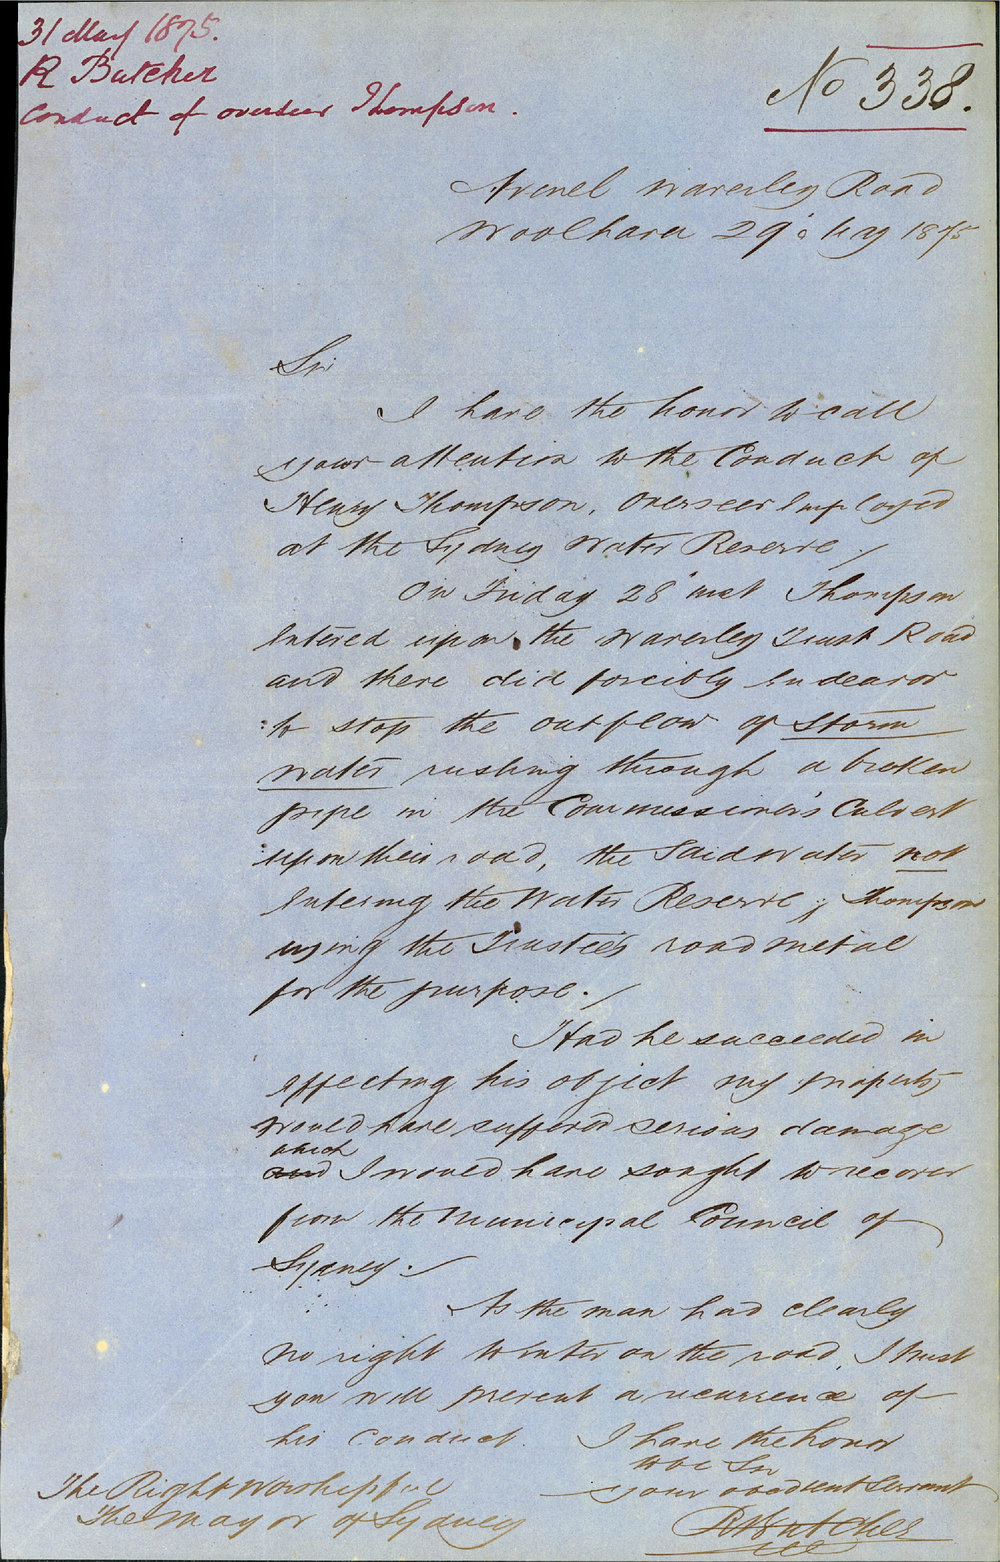 31 May 1875.
R Butcher
Conduct of overseer Thompson.
No 338.
Avenel Waverley Road
Woolhara 29: My 1875
Sir
I have the honor to call
your attention to the Conduct of
Henry Thompson, Overseer Employed
at the Sydney Water Reserve /
On Friday 28" inst Thompson
Entered upon the Waverley Trust Road
and there did forcibly Endeavor
to stop the outflow of Storm
Water rushing through a broken
pipe in the Commissioner's Culvert
upon their road, the Said Water not
Entering the Water Reserve; Thompson
using the Trustees road metal
for the purpose. /
Had he succeeded in
Effecting his object my property
would have suffered serious damage
which
and I would have sought to recover
from the Municipal Council of
Sydney. /
As the man had clearly
no right to enter on the road, I trust
you will prevent a recurrence of
his Conduct. I have the honor
to be Sir
your obedient servant
R Butcher
The Right Worshipful
The Mayor of Sydney